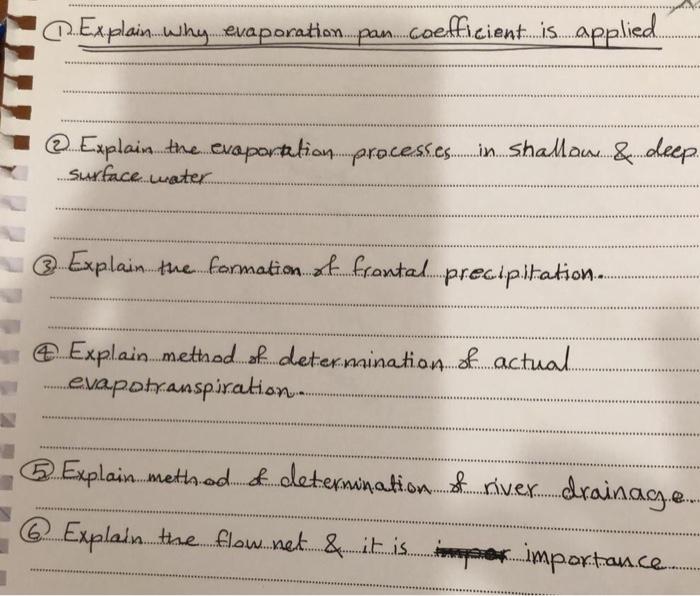 ① Explain why evaporation pan coefficient is applied
② Explain the evaporation processes in shallow & deep
surface water
③ Explain the formation of frontal precipitation.
④ Explain method of determination of actual
evapotranspiration.
⑤ Explain method of determination of river drainage.
⑥ Explain the flow net & it is importance